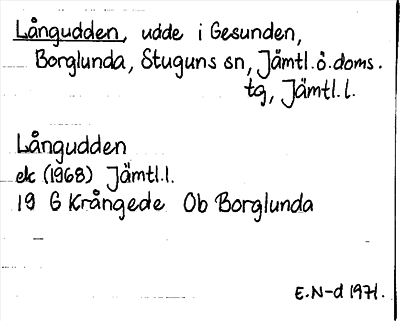 Långudden, udde i Gesunden,
Borglunda, Stuguns sn, Jämtl. ö. doms.
tg, Jämtl. l.
Långudden
ek (1968) Jämtl. l.
19 G Krångede Ob Borglunda
E.N-d 1971.